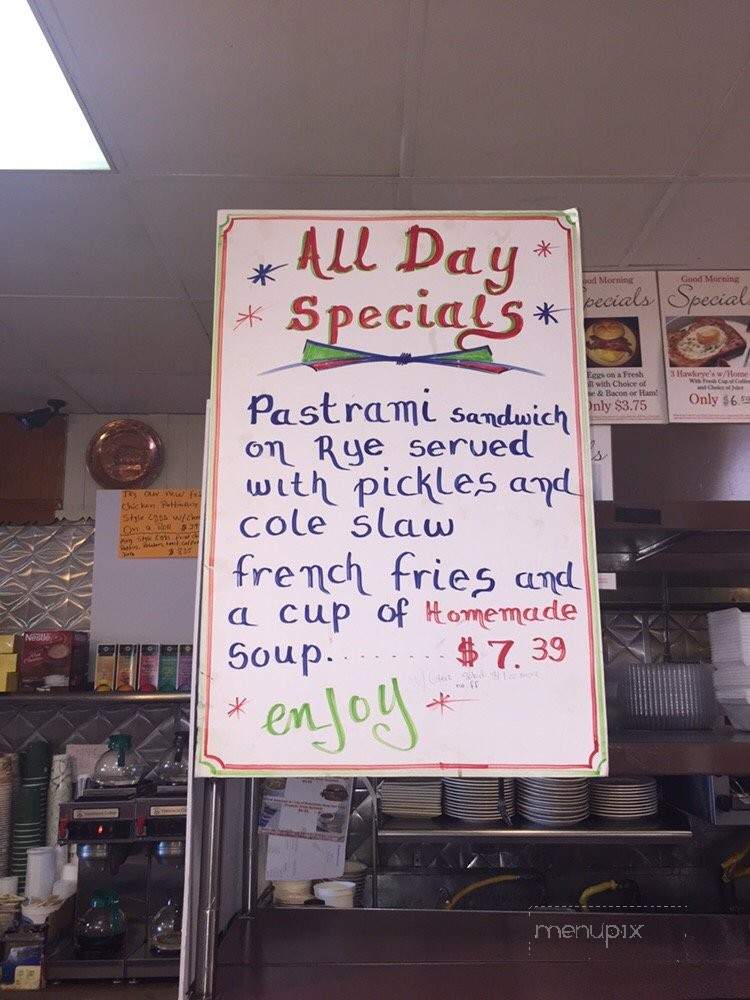 All Day
Specials
Pastrami sandwich
on Rye served
with pickles and
cole slaw
french fries and
a cup of Homemade
Soup. . . . . . . . . $7.39
enjoy
Good Morning
Specials
Eggs on a Fresh
with Choice of
& Bacon or Ham!
Only $3.75
Good Morning
Special
3 Hawkeye's w/Home
With Fresh Cup of Coffee
and Choice of Juice
Only $6.50
Try our new
Chicken
Style eggs
On a Roll
Nestle
menupix